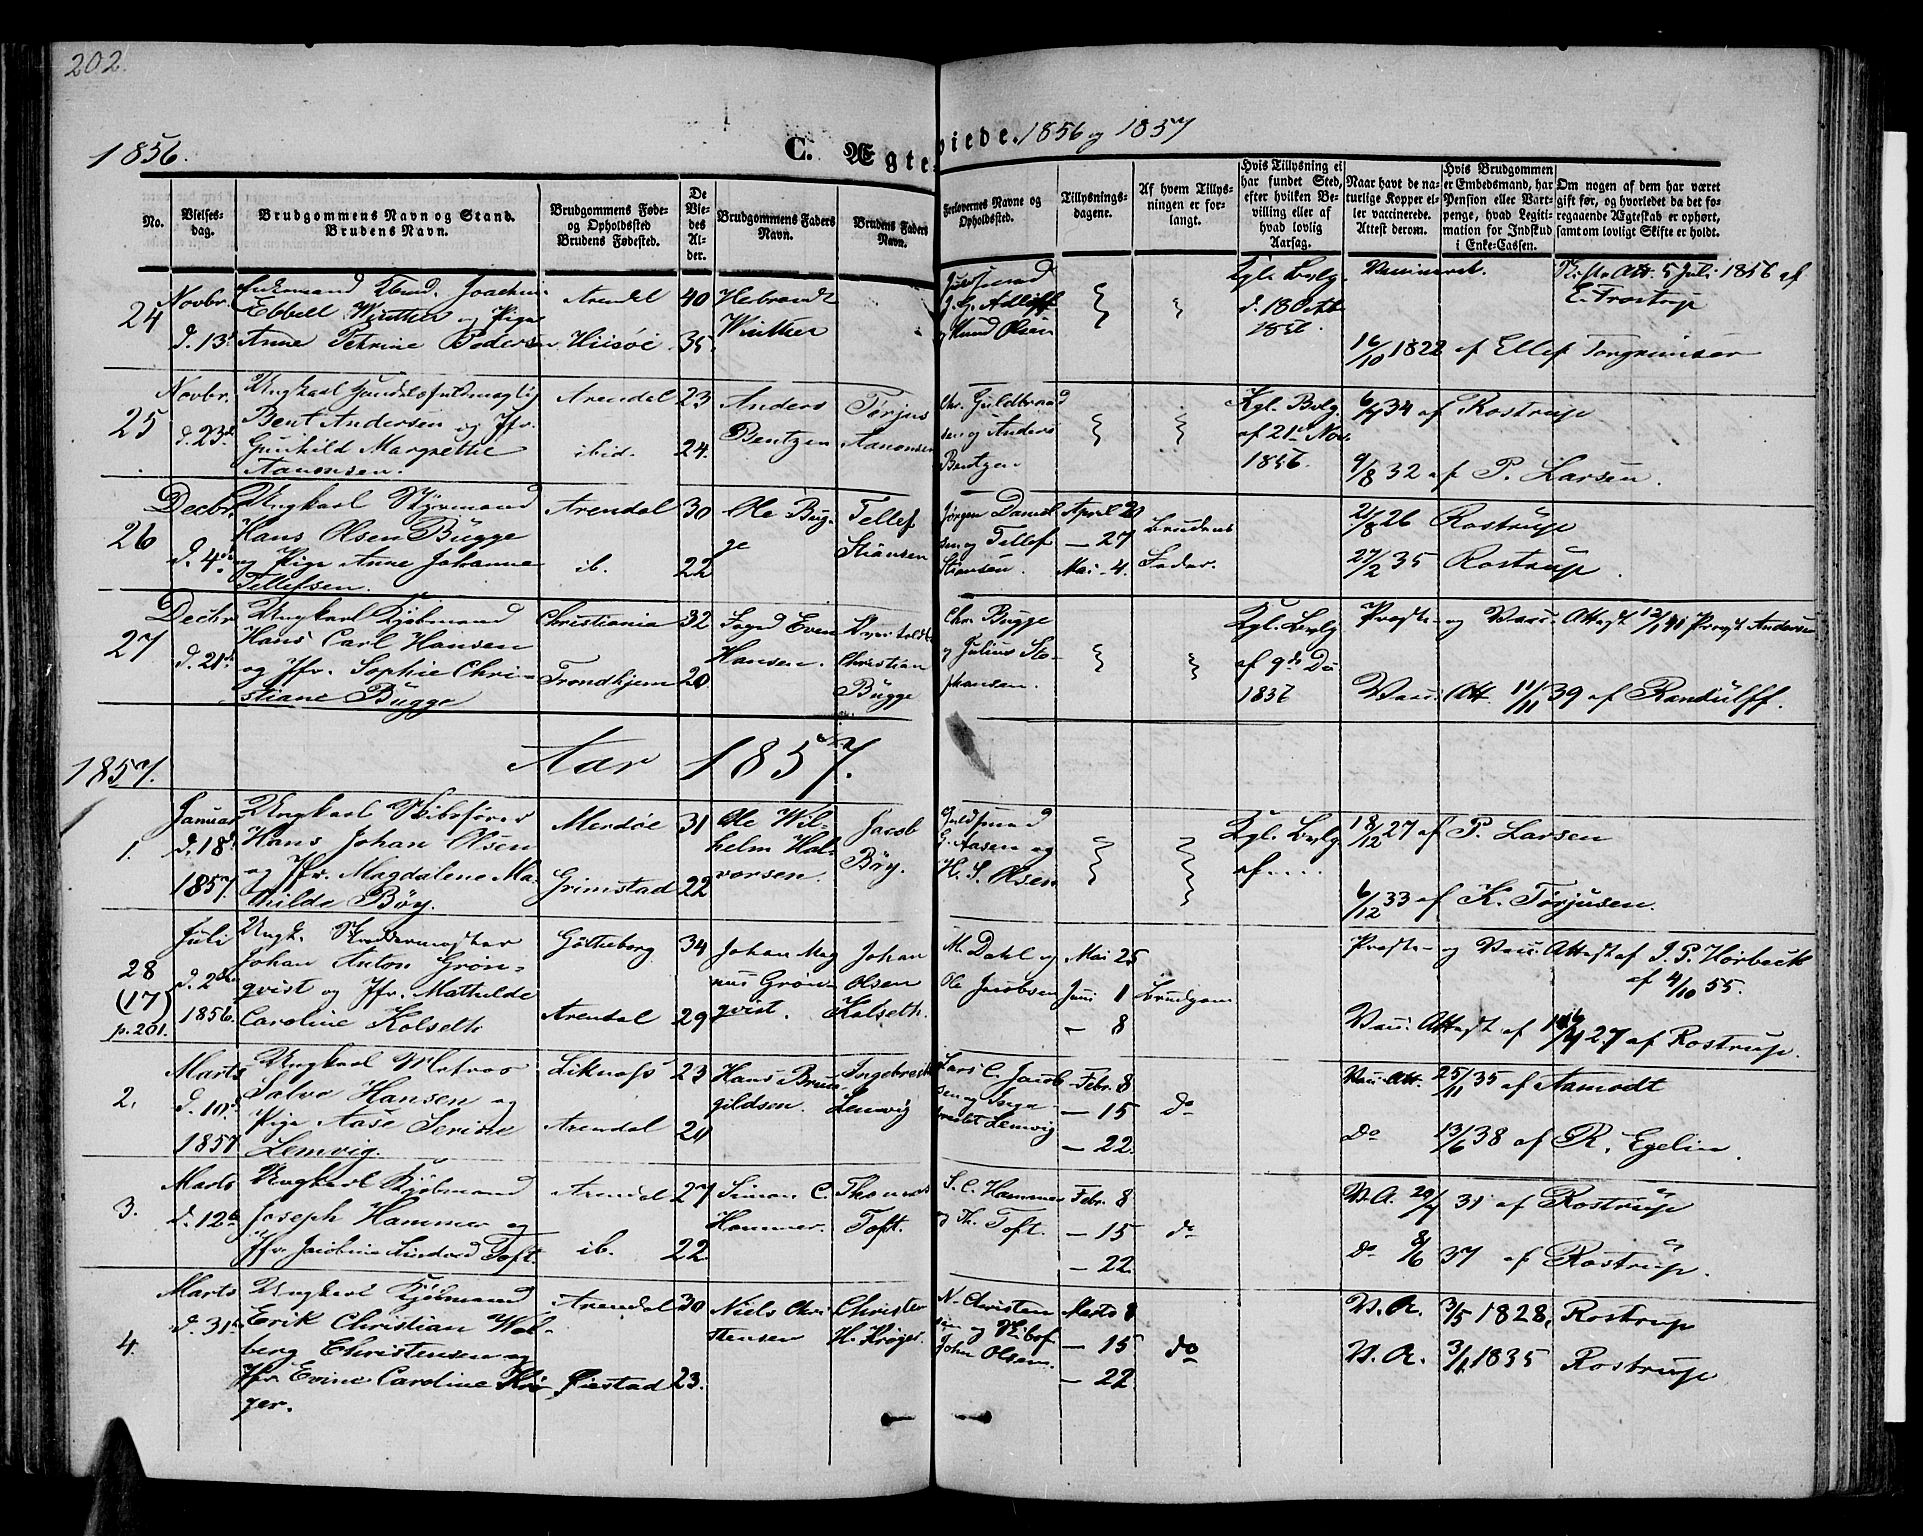 202.
1856.
C. Ægteviede. 1856 og 1857
No.
Vielses-
dag.
Brudgommens Navn og Stand.
Brudens Navn.
Brudgommens Føde-
og Opholdssted
Brudens Fødested.
De
Vie-
des
Al-
der.
Brudgommens Faders
Navn.
Brudens Faders
Navn.
Forlovernes Navne og
Opholdssted.
Tillysnings-
dagene.
Af hvem Tillys-
ningen er for-
langt.
Hvis Tillysning ei
har fundet Sted,
efter hvilken Be-
villing eller af
hvad lovlig
Aarsag.
Naar havt de na-
turlige Kopper el-
ler vaccinerede.
Attest derom.
Hvis Brudgommen
er Embedsmand, har
Pension eller Vart-
penge, hvad Legiti-
mation for Indskud
i Enke-Cassen.
Om nogen af dem har været
gift før, og hvorledet da det fo-
regaaende Ægteskab er ophørt,
samt om lovligt Skifte er holdt.
24
Novbr.
d. 13d
Enkemand Joachim
Ebbell Winther og Pige
Anne Petrine Pedersen
Arendal
Hiisøe
40
35
Hebrandt
Winther
Guldsmed
J. G. Adloff
og Knud Olsen
Kgl. Bevlg.
d. 18 Octb.
1856.
Vaccineret.
Skifte Att. 5 Juli 1856 af
E. Frostrup
16/10 1822 af Ellef Torgrimsen
25
Novbr.
d. 23d
Ungkarl Handelsfuldmægtig
Bent Andersen og Jfr.
Gunhild Margrethe
Aanonsen.
Arendal
ibid.
23
24.
Anders
Bentzen
Terjus
Aanonsen
Chr. Guldbrand
sen og Anders
Bentzen
Kgl. Bvlg.
af 21d Nov.
1856.
6/7 34 af Rostrup
9/8 32 af P. Larsen.
26
Decbr.
d. 4de
Ungkarl Styrmand
Hans Olsen Bugge
og Pige Anne Johanne
Tellefsen.
Arendal
ib.
30
22
Ole Bug-
ge
Tellef
Stiansen
Jørgen Daniel
sen og Tellef
Stiansen.
April 20
— 27
Mai - 4.
Brudens
Fader.
21/8 26 Rostrup
27/2 35 Rostrup.
27
Decbr
d. 21de
Ungkarl Kjøbmand
Hans Carl Hansen
og Jfr. Sophie Chri-
stiane Bugge
Christiania
Trondhjem
32
20
Foged Even
Hansen.
Christian
Bugge
Chr. Bugge
og Julius Ste-
phansen.
Kgl. Bevlg.
af 9de De
1856
Præste- og Vacc. Attest 12/1 41 Provst Andersen
Vacc. Att. 11/11 39 af Randulff.
1857.
Aar 1857.
1.
Januar
d. 18d
1857.
Ungkarl Skibsfører
Hans Johan Olsen
og Jfr. Magdalene Ma-
thilde Bøy.
Merdøe
Grimstad
31
22
Ole Wil-
helm Hal-
vorsen.
Jacob
Bøy.
Guldsmed
G. Aasen og
H. S. Olsen
Kgl. Bevlg.
af....
18/12 27 af P. Larsen
6/12 33 af K. Terjusen.
28
(17)
p. 201.
Juli
d. 2de
1856.
Ungk. Skreddermester
Johan Anton Grøn-
qvist og Jfr. Mathilde
Caroline Kolseth
Gøtheborg
Arendal
34
29
Johan Mag
nus Grøn-
qvist.
Johan
Olsen
Kolseth.
M. Dahl og
Ole Jacobsen
Mai 25
Juni 1
— 8
Brudgom.
Præste- og Vacc. Attest af J. P. Hørbeck
af 4/10 55.
Vacc. Attest af 16/4 27 af Rostrup.
2.
Marts
d. 10d
1857
Ungkarl Matros
Salve Hansen og
Pige Aase Serine
Lemvig.
Liknæss
Arendal
23
20
Hans Brun-
gildsen.
Ingebreth
Lemvig
Lars C. Jacob
sen og Inge-
breth Lemvig
Febr. 8
— 15
— 22.
do
Vacc. Att. 25/11 35 af Aamodt
do 13/6 38 af R. Egelie.
3.
Marts
d. 12te
Ungkarl Kjøbmand
Joseph Hammer og
Jfr. Jacobine Toft.
Arendal
ib.
27
22.
Simon C.
Hammer.
Thomas
Toft.
S. C. Hammer
og Th. Toft.
Febr. 8
— 15
— 22.
do
V. A. 20/7 31 af Rostrup
do 8/6 37 af Rostrup.
4.
Marts
d. 31d
Ungkarl Kjøbmand
Erik Christian Wol-
berg Christensen og
Jfr. Evine Caroline Krø-
ger.
Arendal
Fiestad
30
23.
Niels Chri
stensen
Christen
H. Krøger.
N. Christen
sen og Skibsf.
John Olsen.
Marts 8
— 15
— 22
do
V. A. 3/5 1828, Rostrup
V. A. 3/1 1835 Rostrup